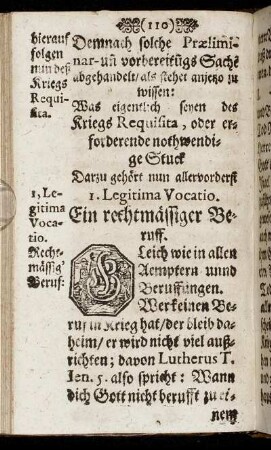 (110)
hierauf
folgen
nun deß
Kriegs
Requi-
sita.
Demnach solche Prælimi-
nar-uñ vorbereitũgs Sachẽ
abgehandelt/als stehet anjetzo zu
wissen:
Was eigentlich seyen des
Kriegs Requisita, oder er-
forderende nothwendi-
ge Stuck
Darzu gehört nun allervorderst
1. Legitima Vocatio.
1, Le-
gitima
Voca-
tio.
Recht-
mässig'
Beruf:
Ein rechtmässiger Be-
ruff.
Gleich wie in allen
Aemptern unnd
Beruffungen.
Wer keinen Be-
ruf in Krieg hat/der bleib da-
heim/er wird nicht viel auß-
richten; davon Lutherus T.
Ien. 5. also spricht: Wann
dich Gott nicht berufft zu ei-
nem